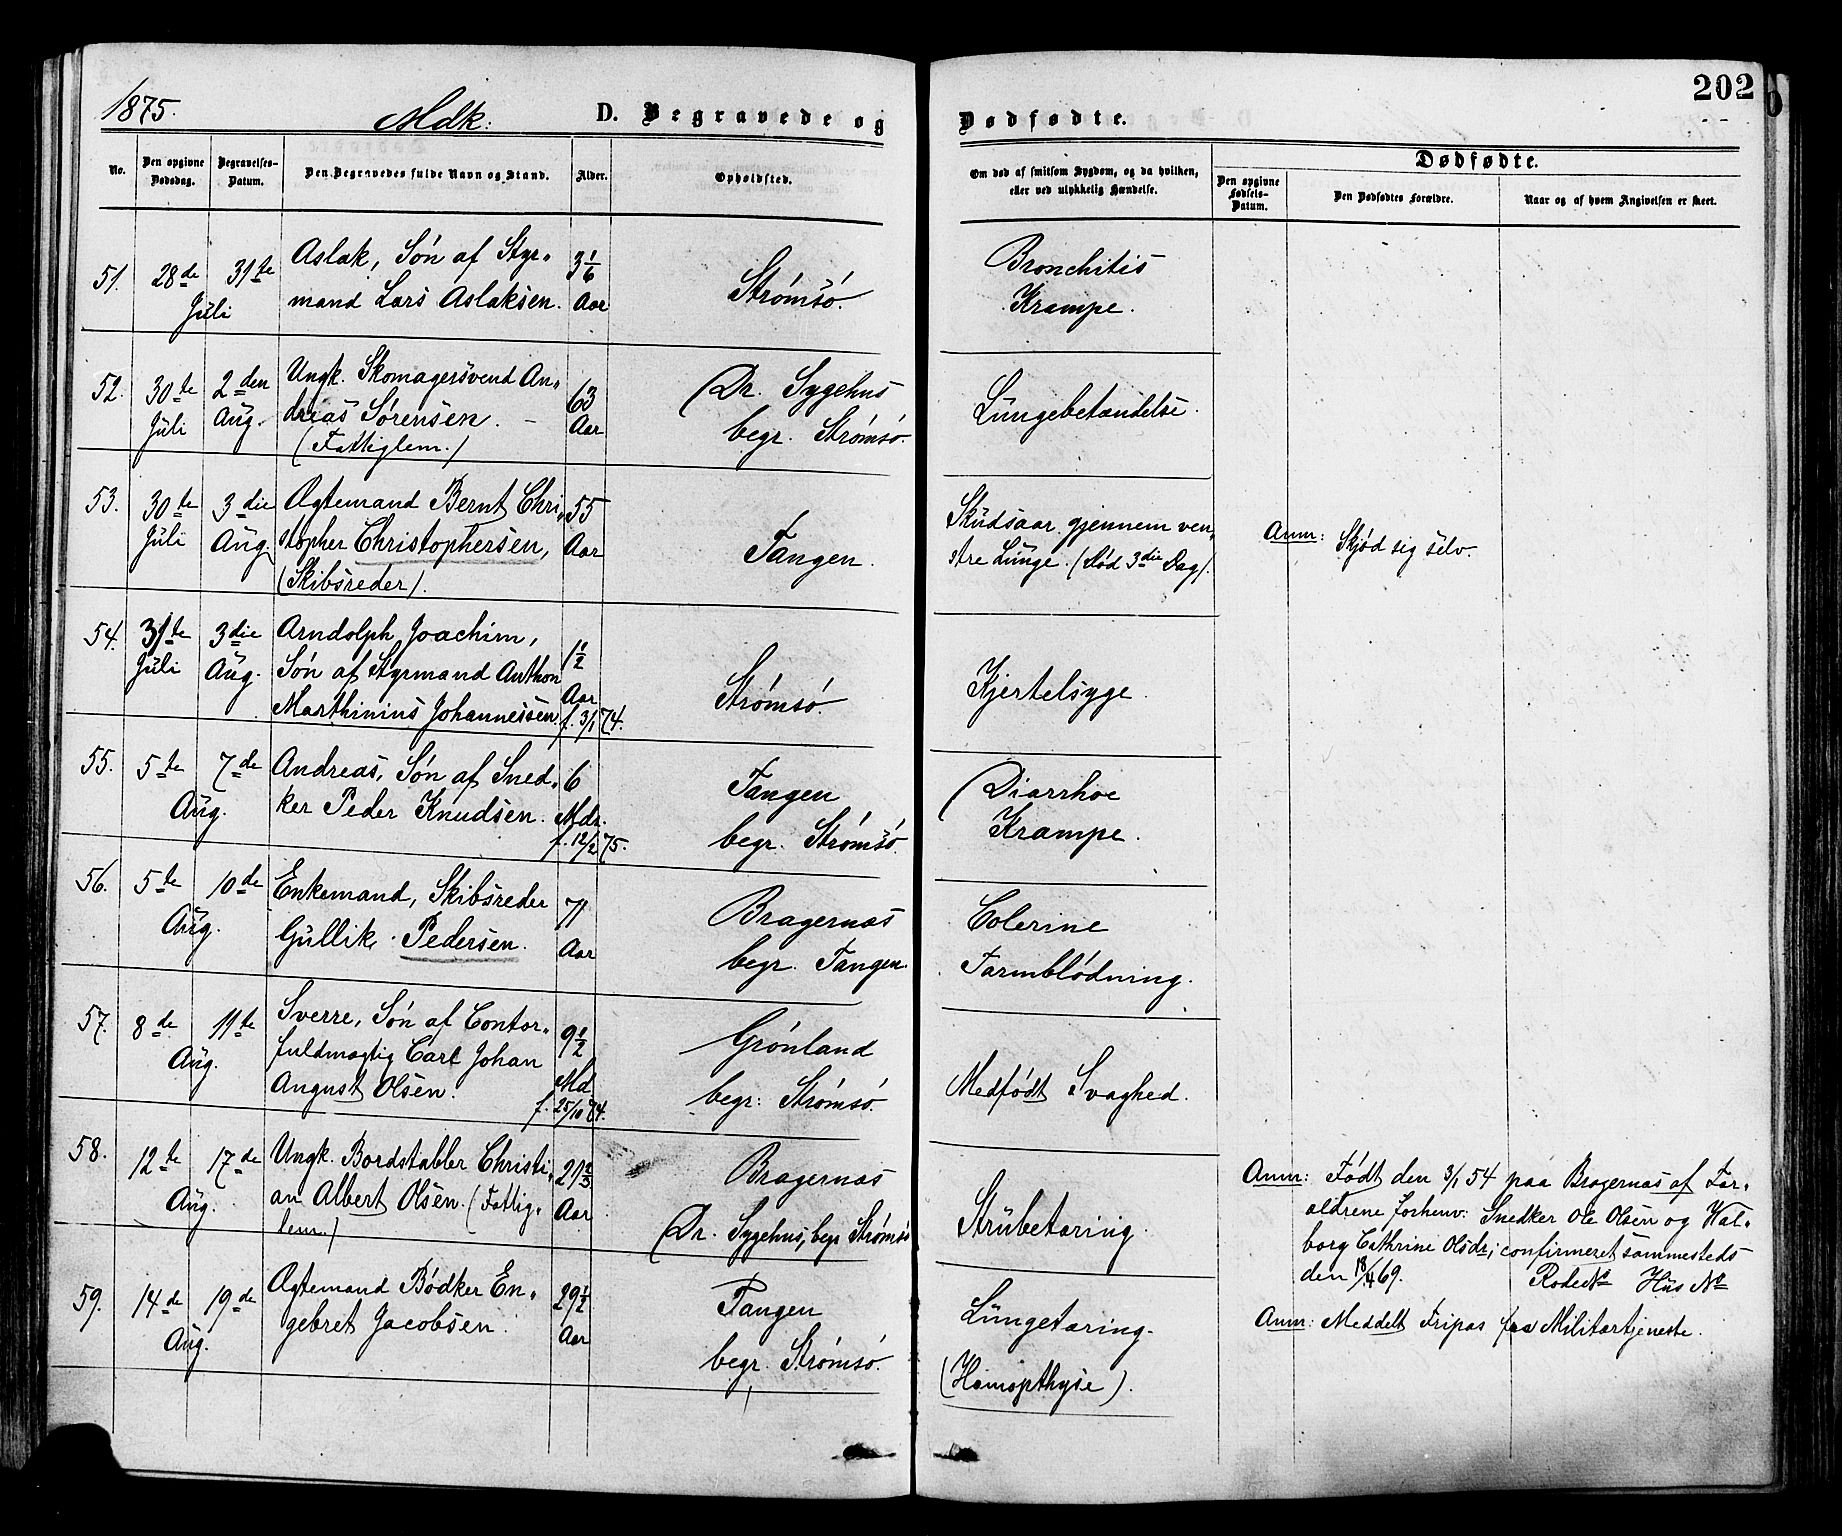 1875.
Mdk:
D. Begravede og
Dødfødte.
202
No.
Den opgivne Dødsdag.
Begravelses-Datum.
Den Begravedes fulde Navn og Stand.
Alder.
Opholdsted.
Om død af smitsom Sygdom, og da hvilken, eller ved ulykkelig Hændelse.
Dødfødte.
Den opgivne Fødsels-Datum.
Den Dødfødtes Forældre.
Naar og af hvem Angivelsen er skeet.
51. 28de 31te Aslak, Søn af Styr- 3 1/6 Bronchitis
Juli mand Lars Aslaksen. Aar Strømsø. Krampe.
52. 30te 2den Ungk. Skomagersvend An- 63 Dr. Sygehus
Juli Aug. dreas Sørensen. — Aar begr. Strømsø. Lungebetændelse.
(Fattiglem.)
53. 30te 3die Ægtemand Bernt Chri- 55 Skudsaar gjennem ven-
Juli Aug. stopher Christophersen, Aar Tangen. stre Lunge. (Død 3die Dag). Anm: Skjød sig selv.
(Skibsreder).
54. 31te 3die Arndolph Joachim, 1 1/2
Juli Aug. Søn af Styrmand Anthon Aar Strømsø. Kjertelsyge.
Marthinius Johannessen. f. 3/1 74.
55. 5te 7de Andreas, Søn af Sned- 6 Tangen Diarrhoe
Aug. ker Peder Knudsen. Mdr. begr. Strømsø. Krampe.
f. 12/2 75.
56. 5te 10de Enkemand, Skibsreder 71 Bragernæs Colerine
Aug. Gullik Pedersen. Aar begr. Tangen. Tarmblødning.
57. 8de 11te Sverre, Søn af Contor- 9 1/2 Grønland
Aug. fuldmægtig Carl Johan Md Medfødt Svaghed.
August Olsen. f. 25/10 74. begr: Strømsø.
58. 12te 17de Ungk. Bordstabler Christi- 21 2/3 Bragernæs
Aug. an Albert Olsen. (Fattig- Aar Dr. Sygehus, begr Strømsø Strubetæring.
lem.)
Anm: Født den 3/1 54 paa Bragernæs af For-
ældrene forhenv: Snedker Ole Olsen og Val-
borg Cathrine Olsdr; confirmeret sammesteds
den 18/4 69. Rode No Hus No
59. 14de 19de Ægtemand Bødker En- 29 1/2 Tangen Lungetæring.
Aug. gebret Jacobsen. Aar begr. Strømsø. (Hæmopthyse).
Anm: Meddelt Fripas fra Militærtjeneste.